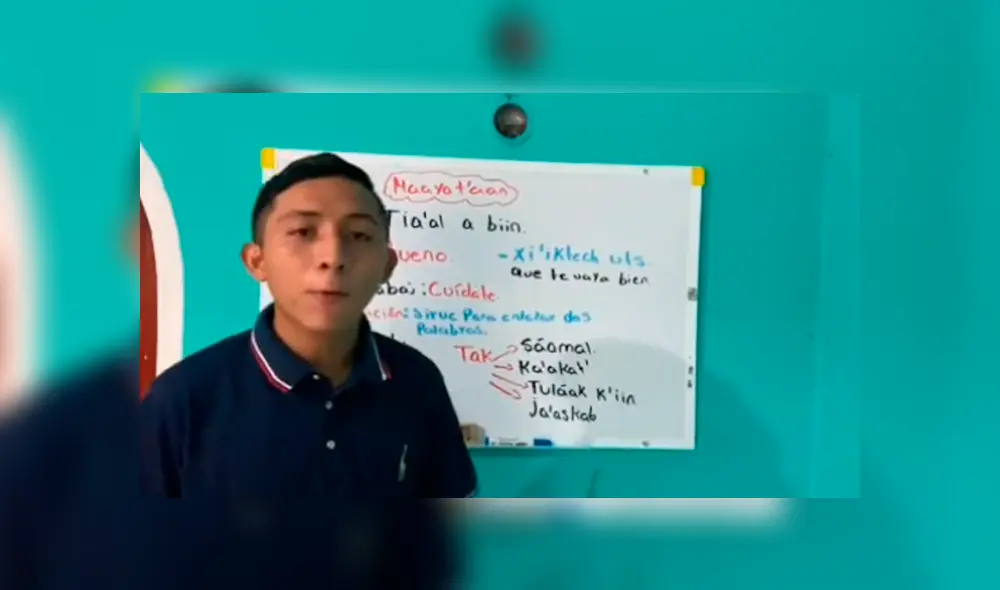 Maayat'aan
Tia'al a biin.
ueno. - Xi'iktech uts.
que te vaya bien
aba; : Cuídate.
ción: Sirve Para enlazar dos
Palabras.
Tak Sáamal.
Ka'akat'
Tuláak K'iin
Ja'askab